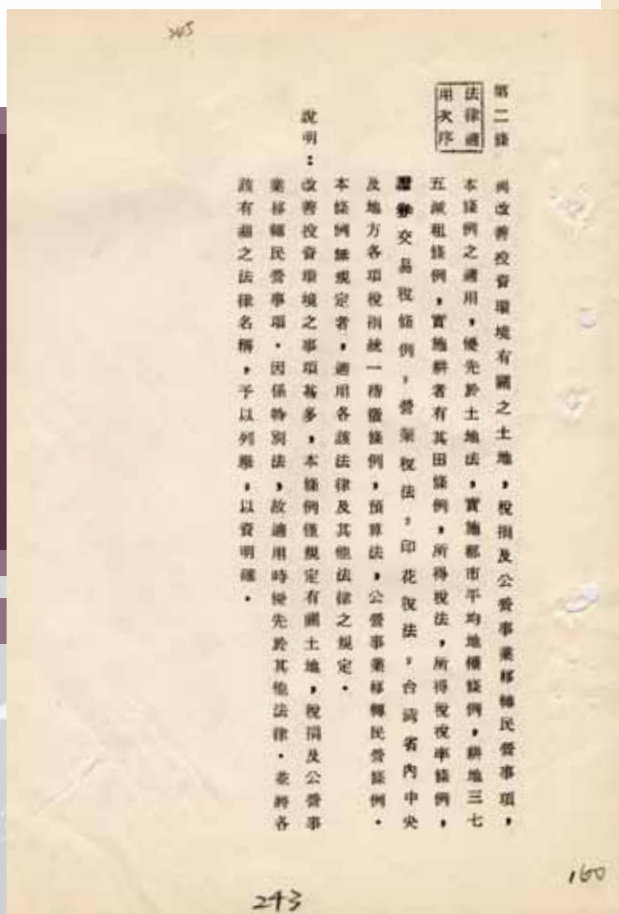 第二條 與改善投資環境有關之土地，稅捐及公營事業移轉民營事項，
法律適
用次序
本條例之適用，優先於土地法，實施都市平均地權條例，耕地三七
五減租條例，實施耕者有其田條例，所得稅法，所得稅稅率條例，
證券交易稅條例，營業稅法，印花稅法，台灣省內中央
及地方各項稅捐統一稽徵條例，預算法，公營事業移轉民營條例。
本條例無規定者，適用各該法律及其他法律之規定。
說明：改善投資環境之事項甚多，本條例僅規定有關土地，稅捐及公營事
業移轉民營事項。因係特別法，故適用時優先於其他法律。並將各
該有關之法律名稱，予以列舉，以資明確。
243
160